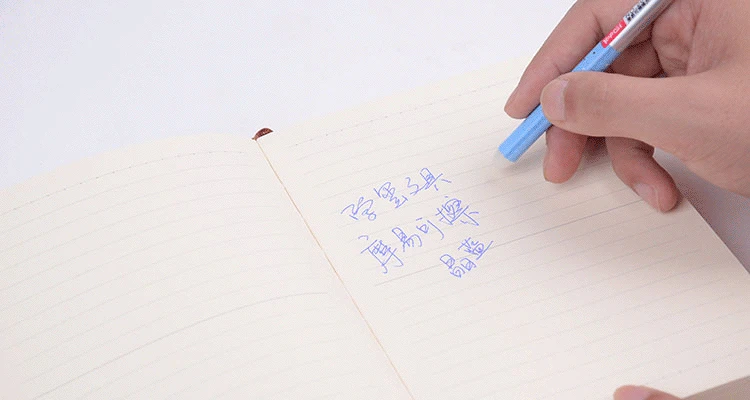 文具
摩易可擦
晶蓝